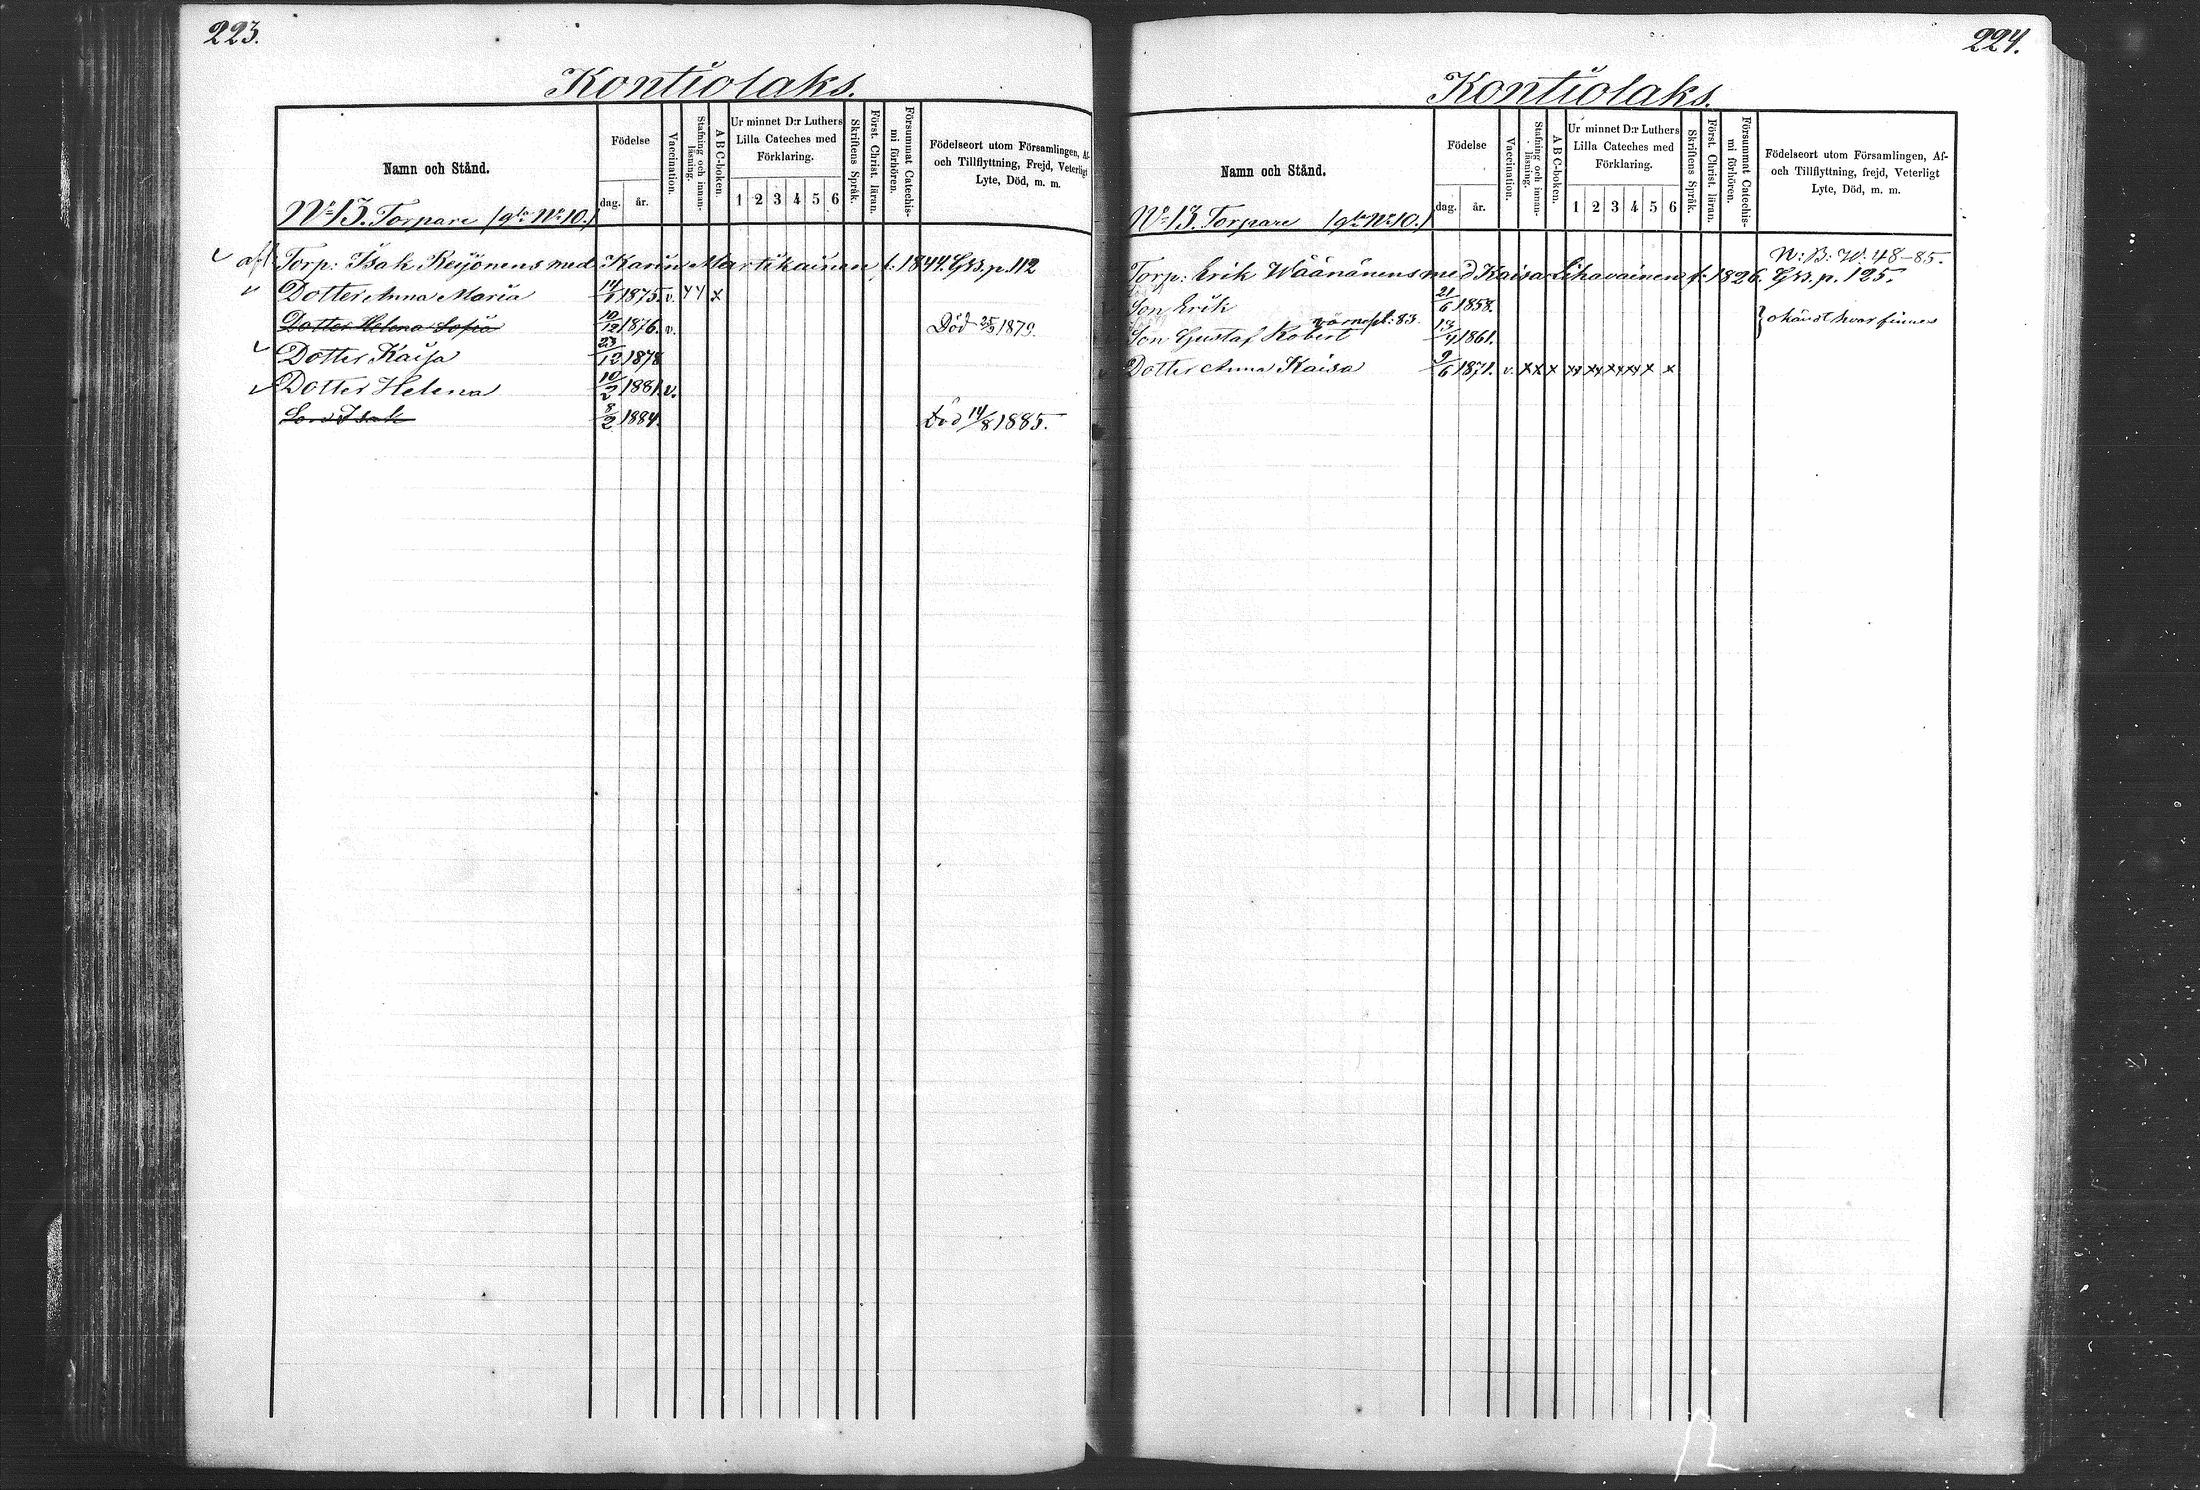 223.
Kontiolaks.
Namn och Stånd.
Födelse
dag. år.
Vaccination.
Stafning och innan-
läsning.
A B C-boken.
Ur minnet D:r Luthers
Lilla Cateches med
Förklaring.
1 2 3 4 5 6
Skriftens Språk.
Först. Christ. läran.
Försummat Catechis-
mi förhören.
Födelseort utom Församlingen, Af-
och Tillflyttning, Frejd, Veterligt
Lyte, Död, m. m.
No 13. Torpare (gla No 10.)
Torp: Isak Reijonens med Karin Martikainen f: 1844. Gss. p. 112
Dotter Anna Maria 1875. v. x
Dotter Helena Sofia 10/12 1876. v. Död 25/9 1879.
Dotter Kaisa 23/12 1878
Dotter Helena 10/2 1881. v.
Son Isak 8/2 1884. Död 14/8 1885.
224.
Kontiolaks.
Namn och Stånd.
Födelse
dag. år.
Vaccination.
Stafning och innan-
läsning.
A B C-boken.
Ur minnet D:r Luthers
Lilla Cateches med
Förklaring.
1 2 3 4 5 6
Skriftens Språk.
Först. Christ. läran.
Försummat Catechis-
mi förhören.
Födelseort utom Församlingen, Af-
och Tillflyttning, frejd, Veterligt
Lyte, Död, m. m.
No 13. Torpare (gla No 10.)
N: B: W: 48-85.
Torp: Erik Wäänänens med Kaisa Lihavainen f: 1826. Gss. p. 125.
Son Erik 21/6 1858. } okändt hvar finnes
värnepl: 83.
Son Gustaf Robert 13/4 1861.
Dotter Anna Kaisa 9/6 1871. v. x x x xx xx xx xx x x